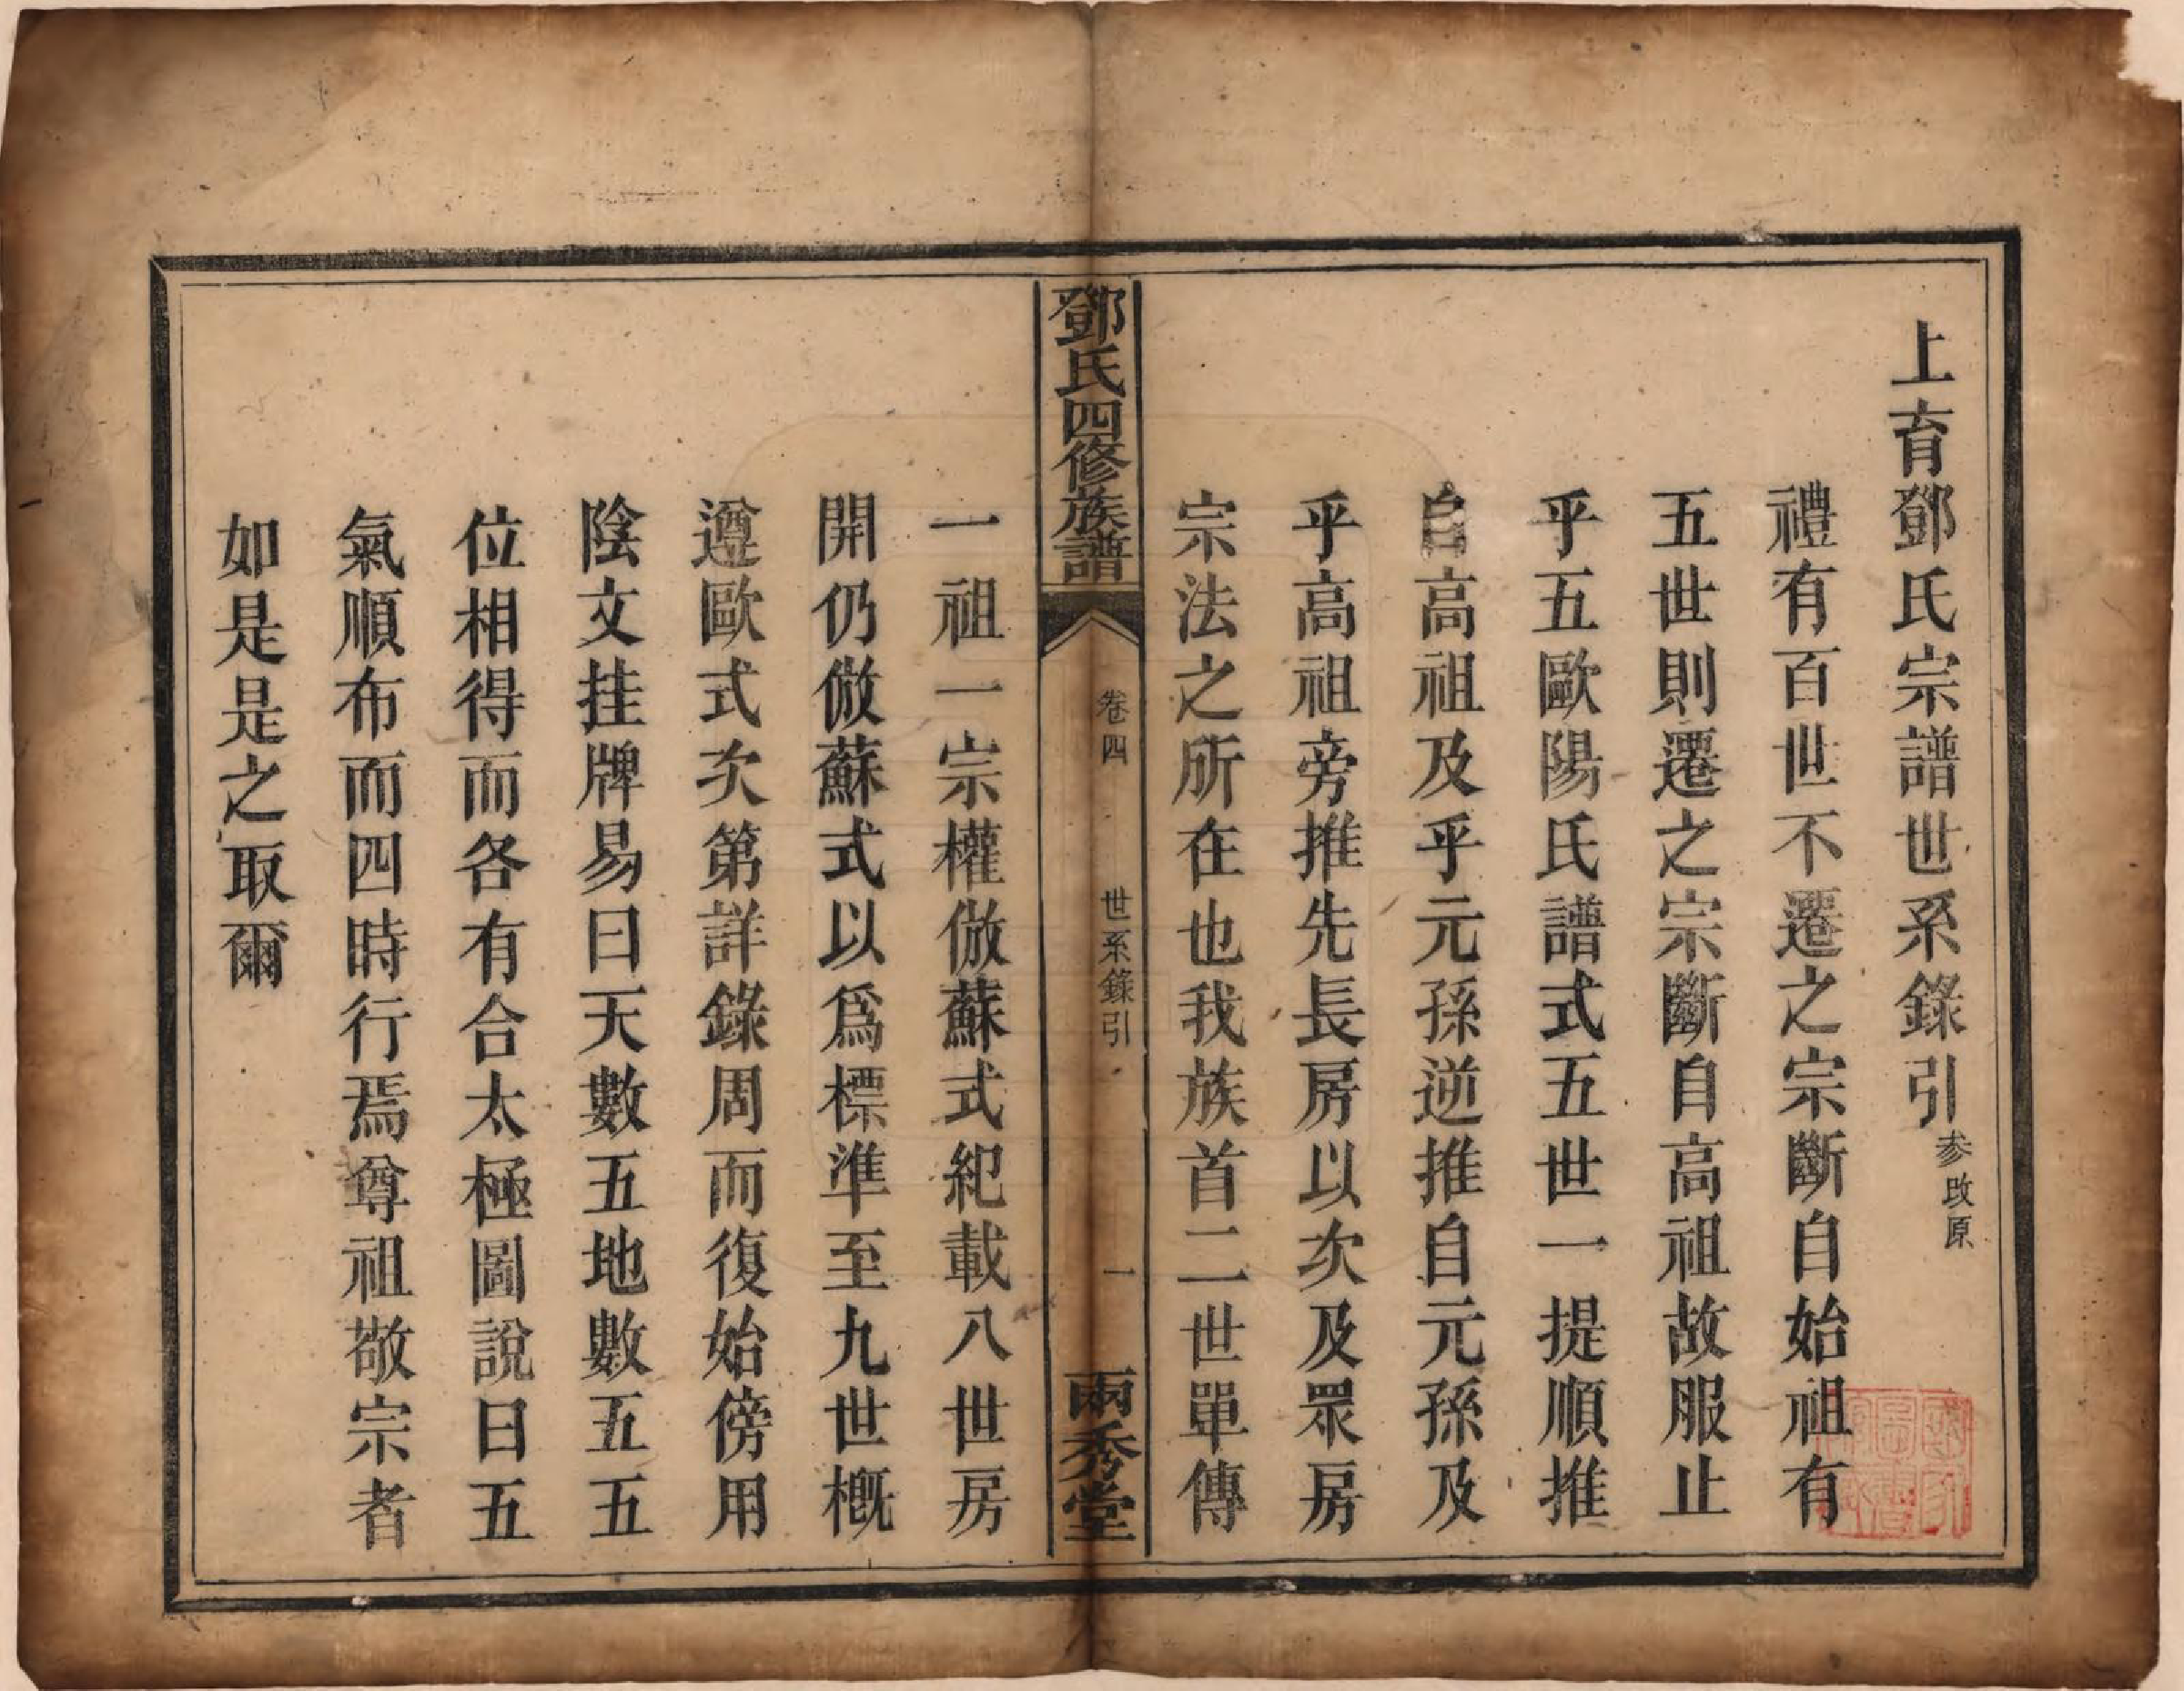 上育鄧氏宗譜世系錄引參改原
禮有百世不遷之宗斷自始祖有
五世則遷之宗斷自高祖故服止
乎五歐陽氏譜式五世一提順推
自高祖及乎元孫逆推自元孫及
乎高祖旁推先長房以次及眾房
宗法之所在也我族首二世單傳
鄧氏四修族譜
卷四
世系錄引
一
兩秀堂
一祖一宗權倣蘇式紀載八世房
開仍倣蘇式以爲標準至九世概
遵歐式次第詳錄周而復始傍用
陰文挂牌易曰天數五地數五五
位相得而各有合太極圖說曰五
氣順布而四時行焉尊祖敬宗者
如是是之取爾